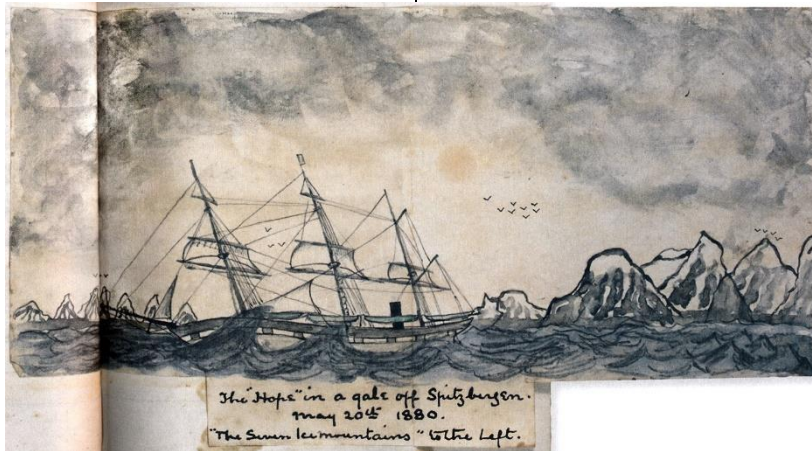 The "Hope" in a gale off Spitzbergen.
May 20th 1880.
"The Seven Icemountains" to the Left.